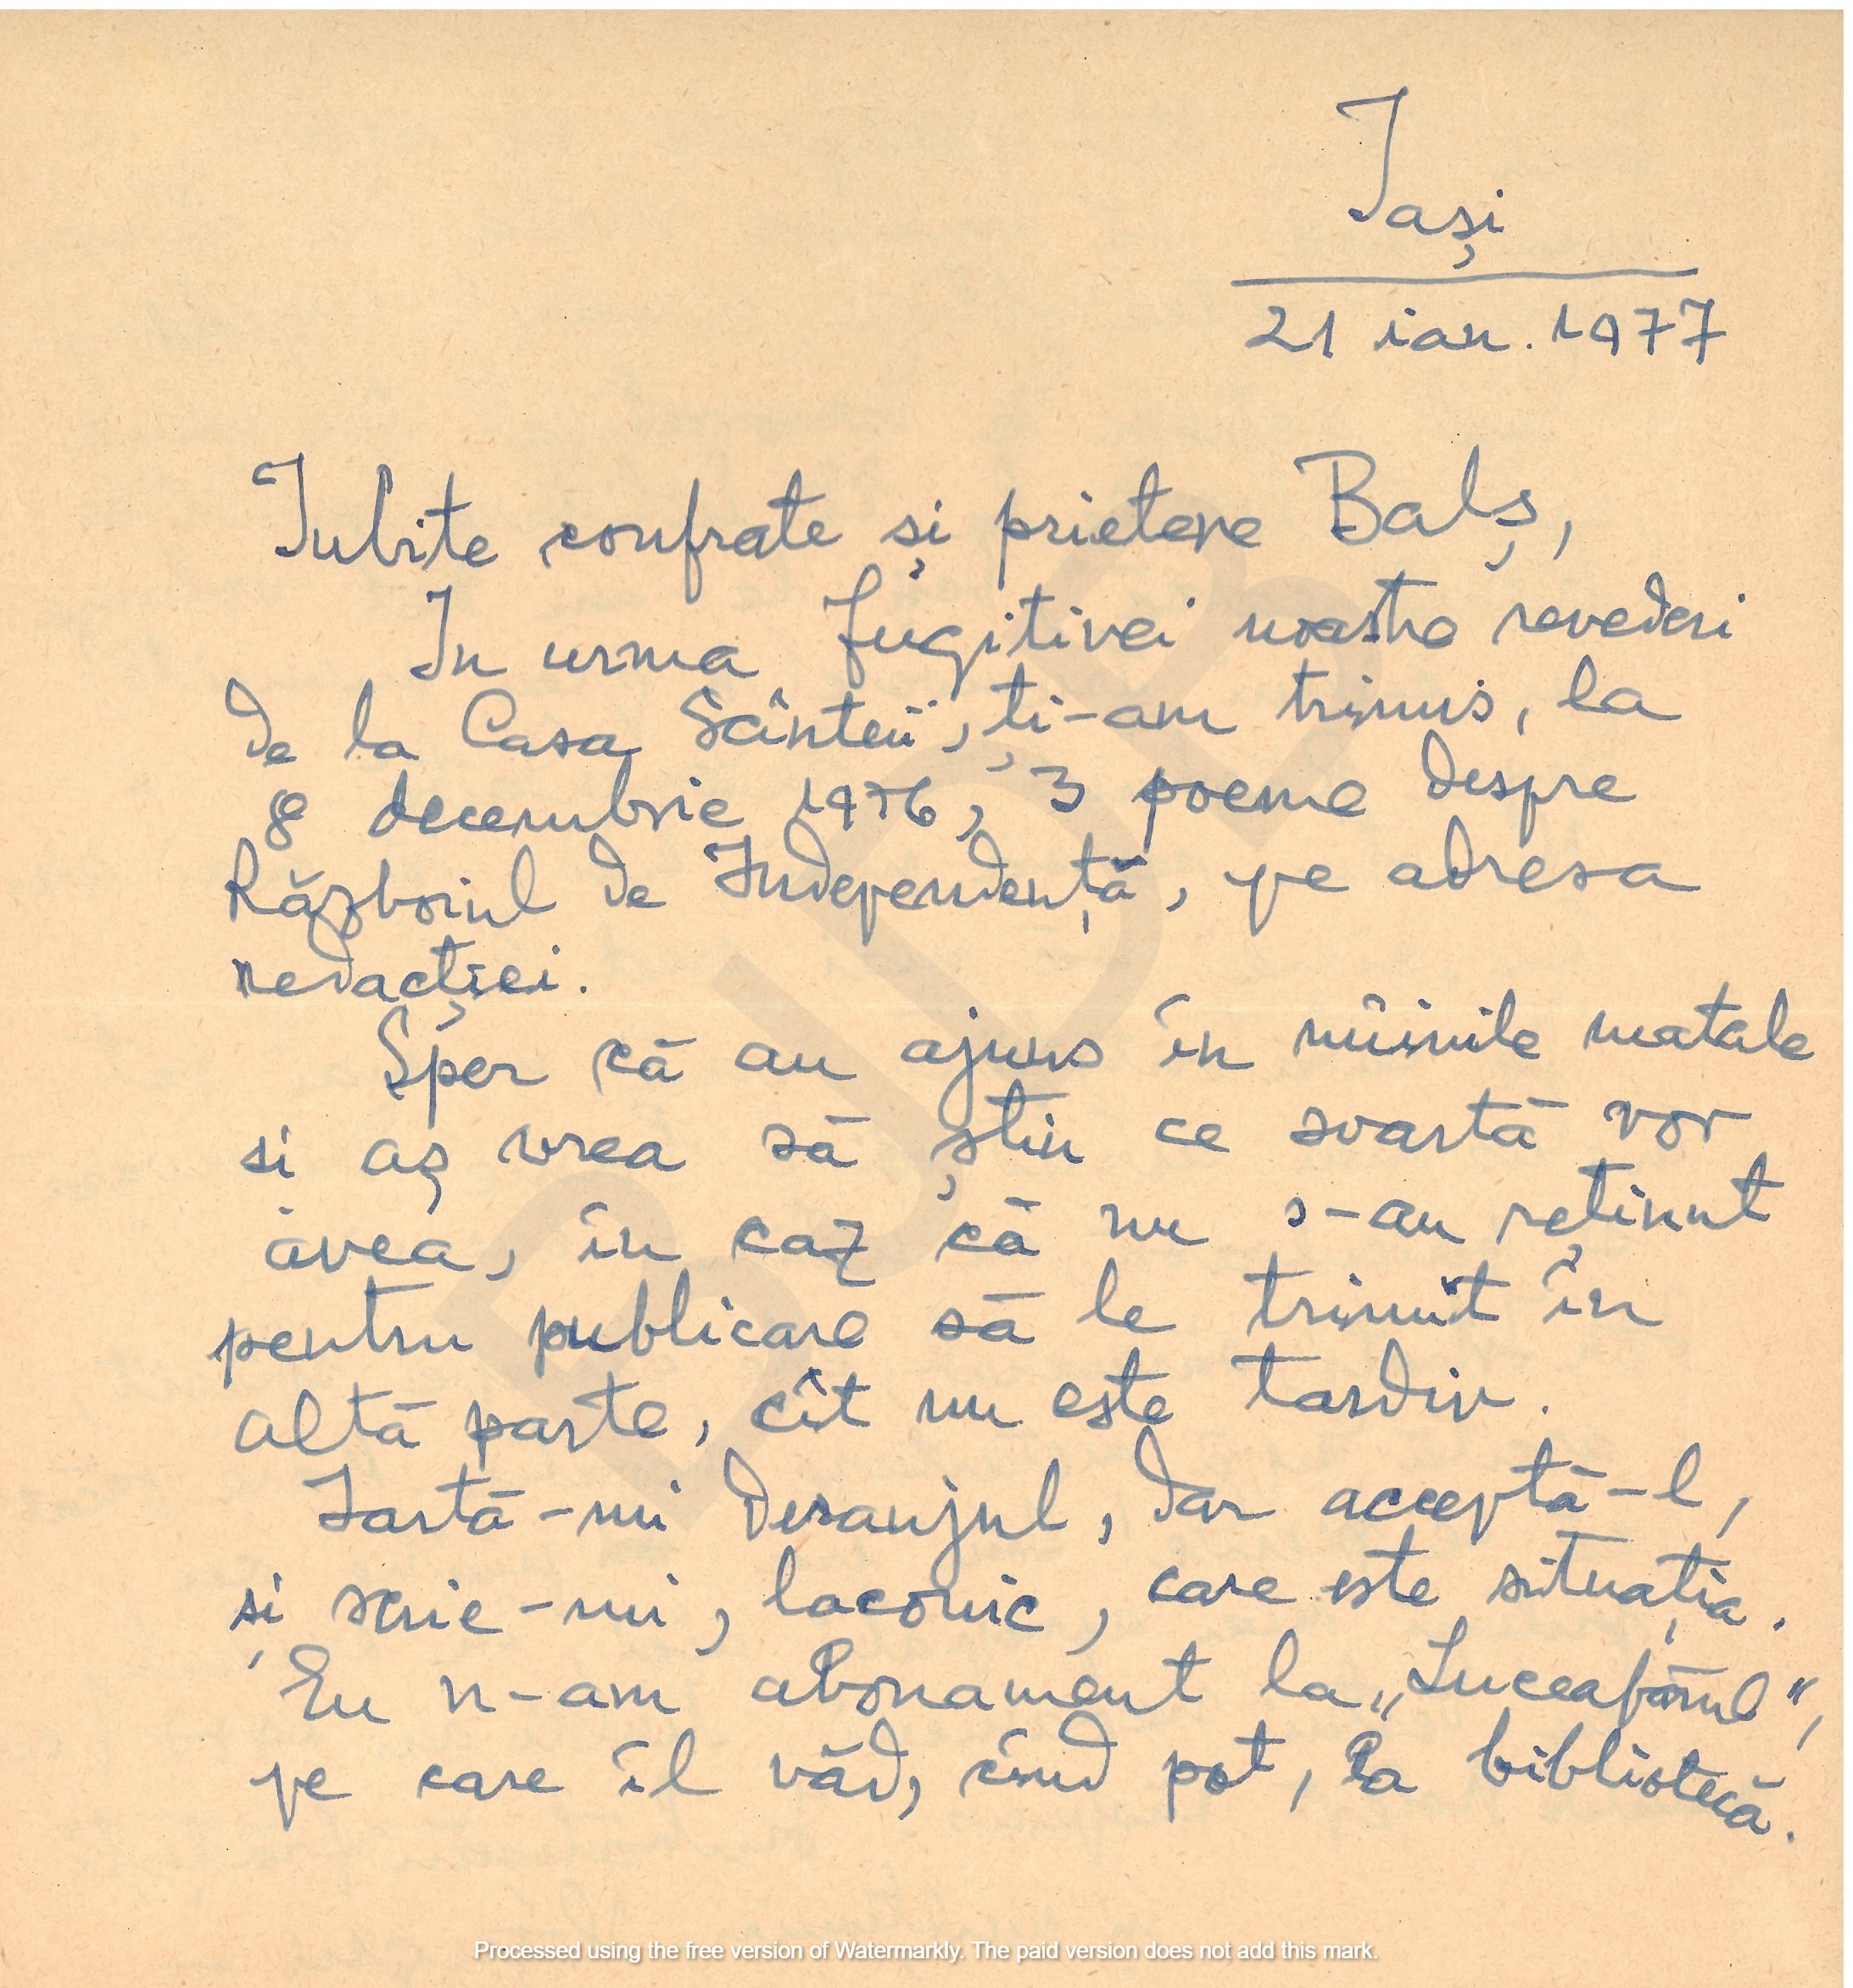 Iași
21 ian. 1977
Iubite confrate și prietene Balș,
In urma fugitivei noastre revederi
de la Casa Scînteii, ți-am trimis, la
8 decembrie 1976, 3 poeme despre
Războiul de Independență, pe adresa
redacției.
Sper că au ajuns în mîinile matale
si aș vrea să știu ce soartă vor
avea, în caz că nu s-au reținut
pentru publicare să le trimit în
altă parte, cît nu este tardiv.
Iartă-mi deranjul, dar acceptă-l,
și scrie-mi, laconic, care este situația.
Eu n-am abonament la „Luceafărul",
pe care îl văd, cînd pot, la bibliotecă.
BJDB
Processed using the free version of Watermarkly. The paid version does not add this mark.